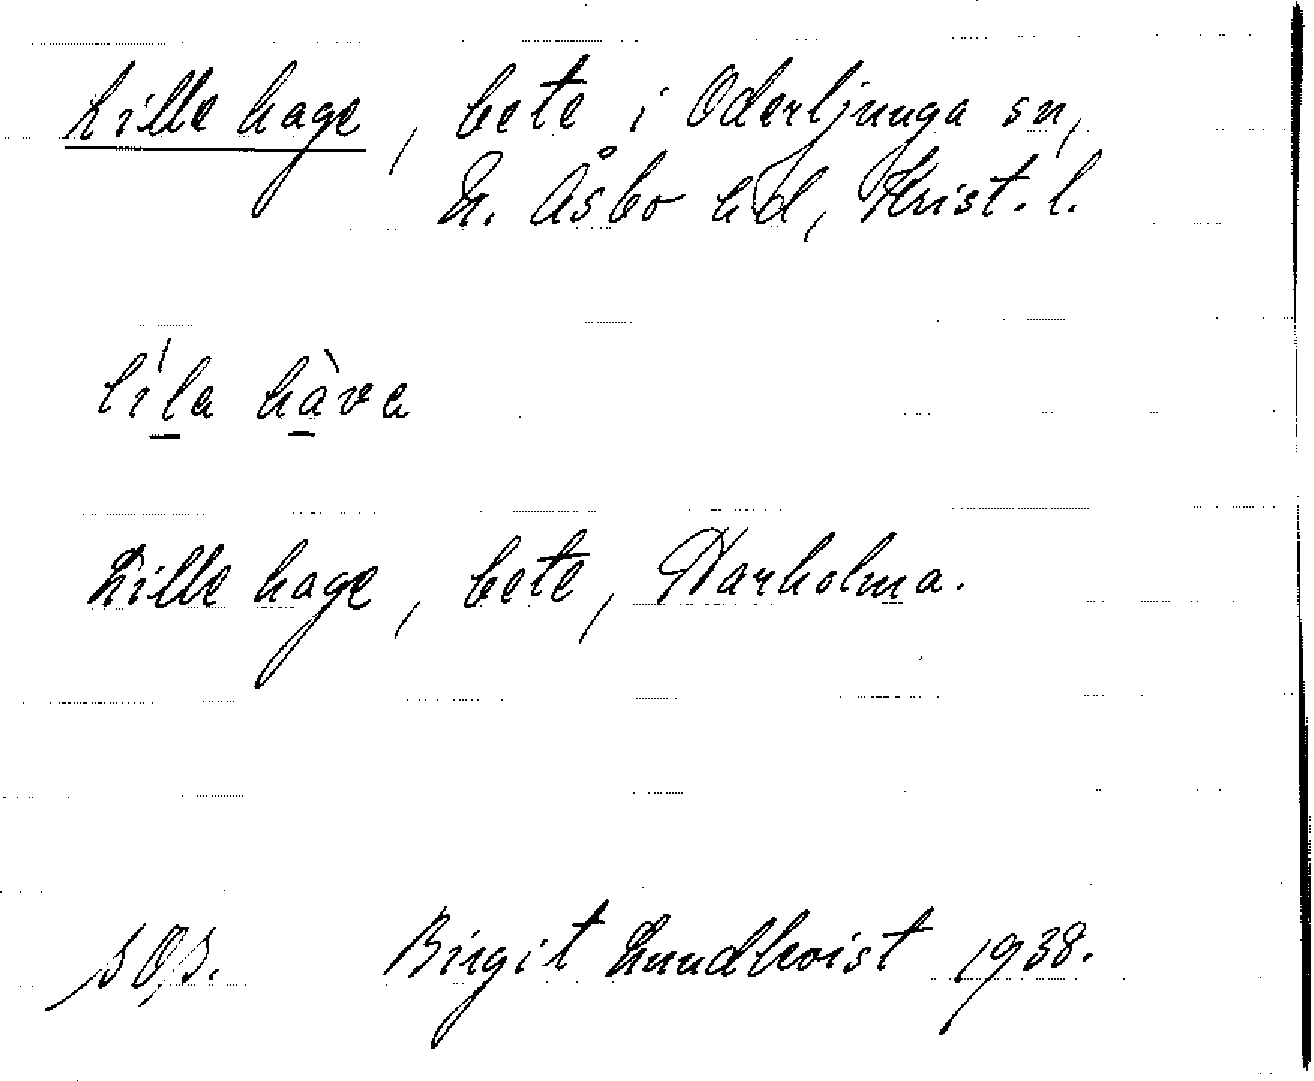 Lille hage, bete i Oderljunga sn,
N. Åsbo hd, Krist. l.
lila hàva
Lille hage, bete, Harholma.
Birgit Lundkvist 1938.